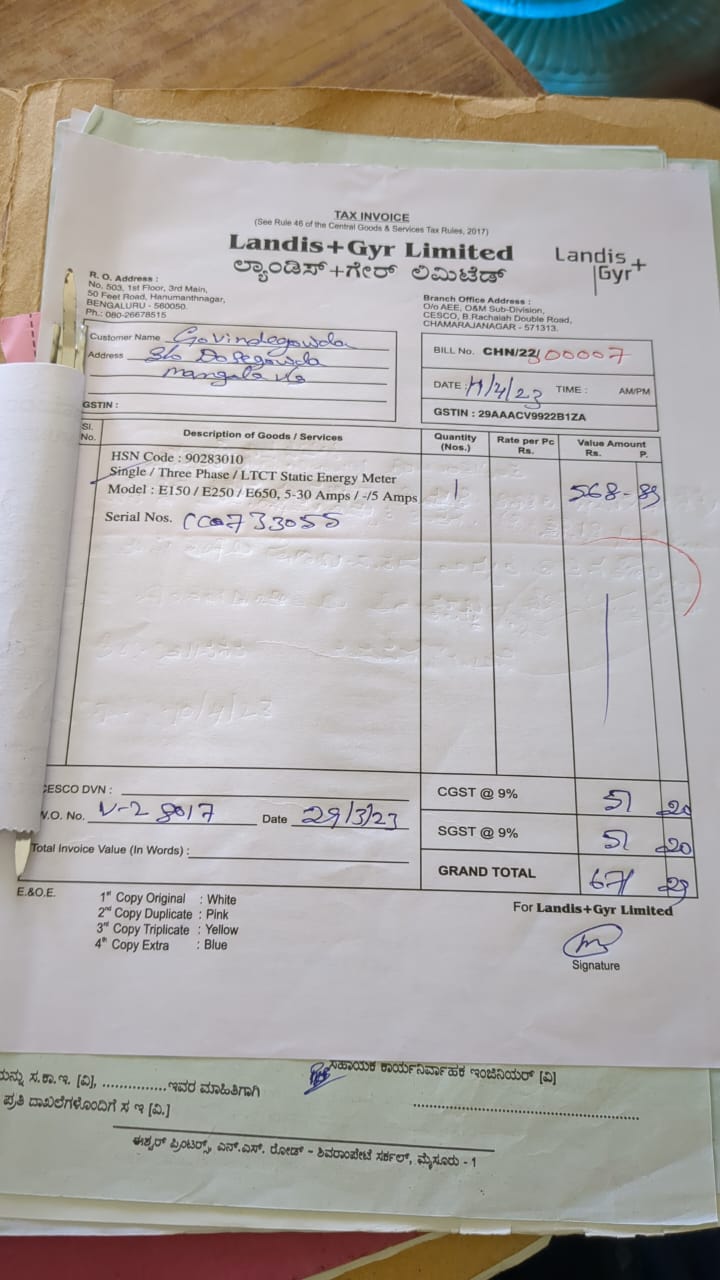 TAX INVOICE
(See Rule 46 of the Central Goods & Services Tax Rules, 2017)
Landis+Gyr Limited
ಲ್ಯಾಂಡಿಸ್+ಗೇರ್ ಲಿಮಿಟೆಡ್
Landis+
Gyr
R. O. Address :
No. 503, 1st Floor, 3rd Main,
50 Feet Road, Hanumanthnagar,
BENGALURU - 560050.
Ph.: 080-26678515
Branch Office Address :
O/o AEE, O&M Sub-Division,
CESCO, B.Rachaiah Double Road,
CHAMARAJANAGAR - 571313.
Customer Name Govindegowda
Address S/o Dasegowda
Mangala
GSTIN :
BILL No. CHN/22/300007
DATE : 11/4/23 TIME : AM/PM
GSTIN : 29AAACV9922B1ZA
Sl. No. Description of Goods / Services Quantity (Nos.) Rate per Pc Rs. Value Amount Rs. P.
HSN Code : 90283010
Single / Three Phase / LTCT Static Energy Meter
Model : E150 / E250 / E650, 5-30 Amps / -/5 Amps 1 568-89
Serial Nos. 733055
CESCO DVN :
W.O. No. 8017 Date 29/3/23
Total Invoice Value (In Words) :
CGST @ 9% 51 20
SGST @ 9% 51 20
GRAND TOTAL 671 29
E.&O.E.
1st Copy Original : White
2nd Copy Duplicate : Pink
3rd Copy Triplicate : Yellow
4th Copy Extra : Blue
For Landis+Gyr Limited
Signature
ಸಹಾಯಕ ಕಾರ್ಯನಿರ್ವಾಹಕ ಇಂಜಿನಿಯರ್ [ವಿ]
ಸ.ಕಾ.ಇ. [ವಿ], ...............ಇವರ ಮಾಹಿತಿಗಾಗಿ
ಪ್ರತಿ ದಾಖಲೆಗಳೊಂದಿಗೆ ಸ ಇ [ವಿ.]
ಈಶ್ವರ್ ಪ್ರಿಂಟರ್ಸ್, ಎನ್.ಎಸ್. ರೋಡ್ - ಶಿವರಾಂಪೇಟೆ ಸರ್ಕಲ್, ಮೈಸೂರು - 1